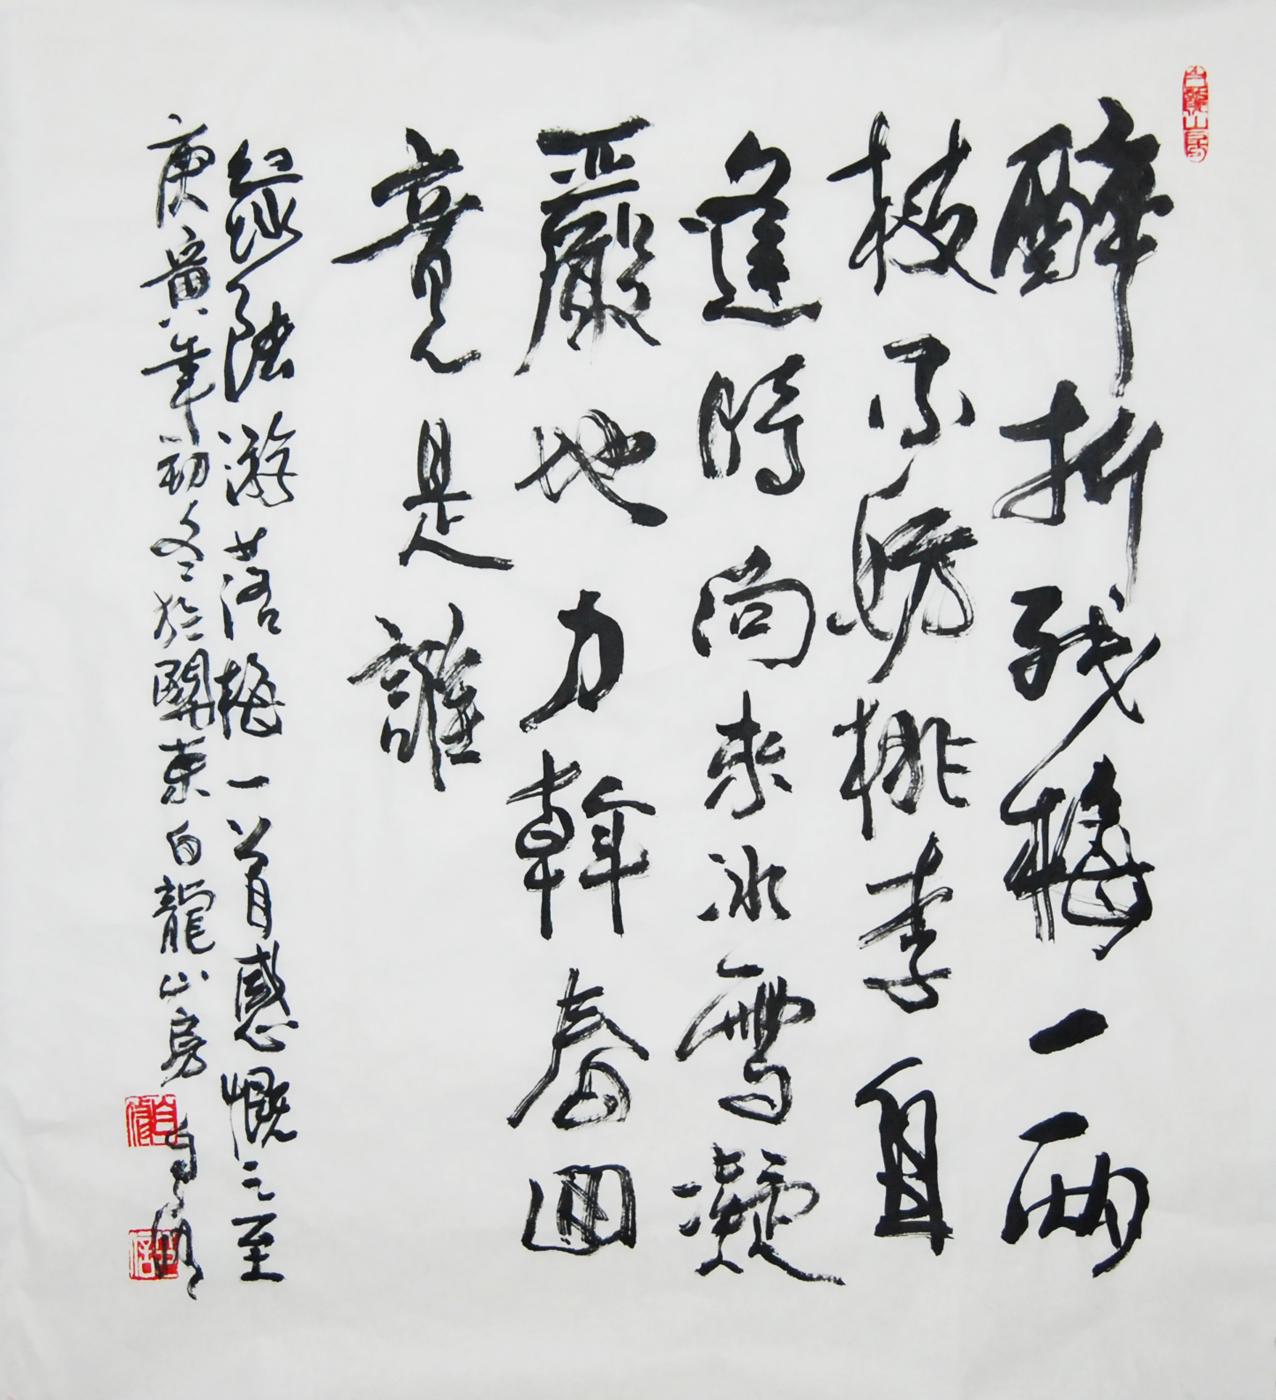 白龍山房
醉折残梅一兩
枝不妨桃李自
逢時向来冰雪凝
嚴地力斡春囬
竟是誰
録陸游落梅一首感慨之至
庚寅年初冬於關東白龍山房